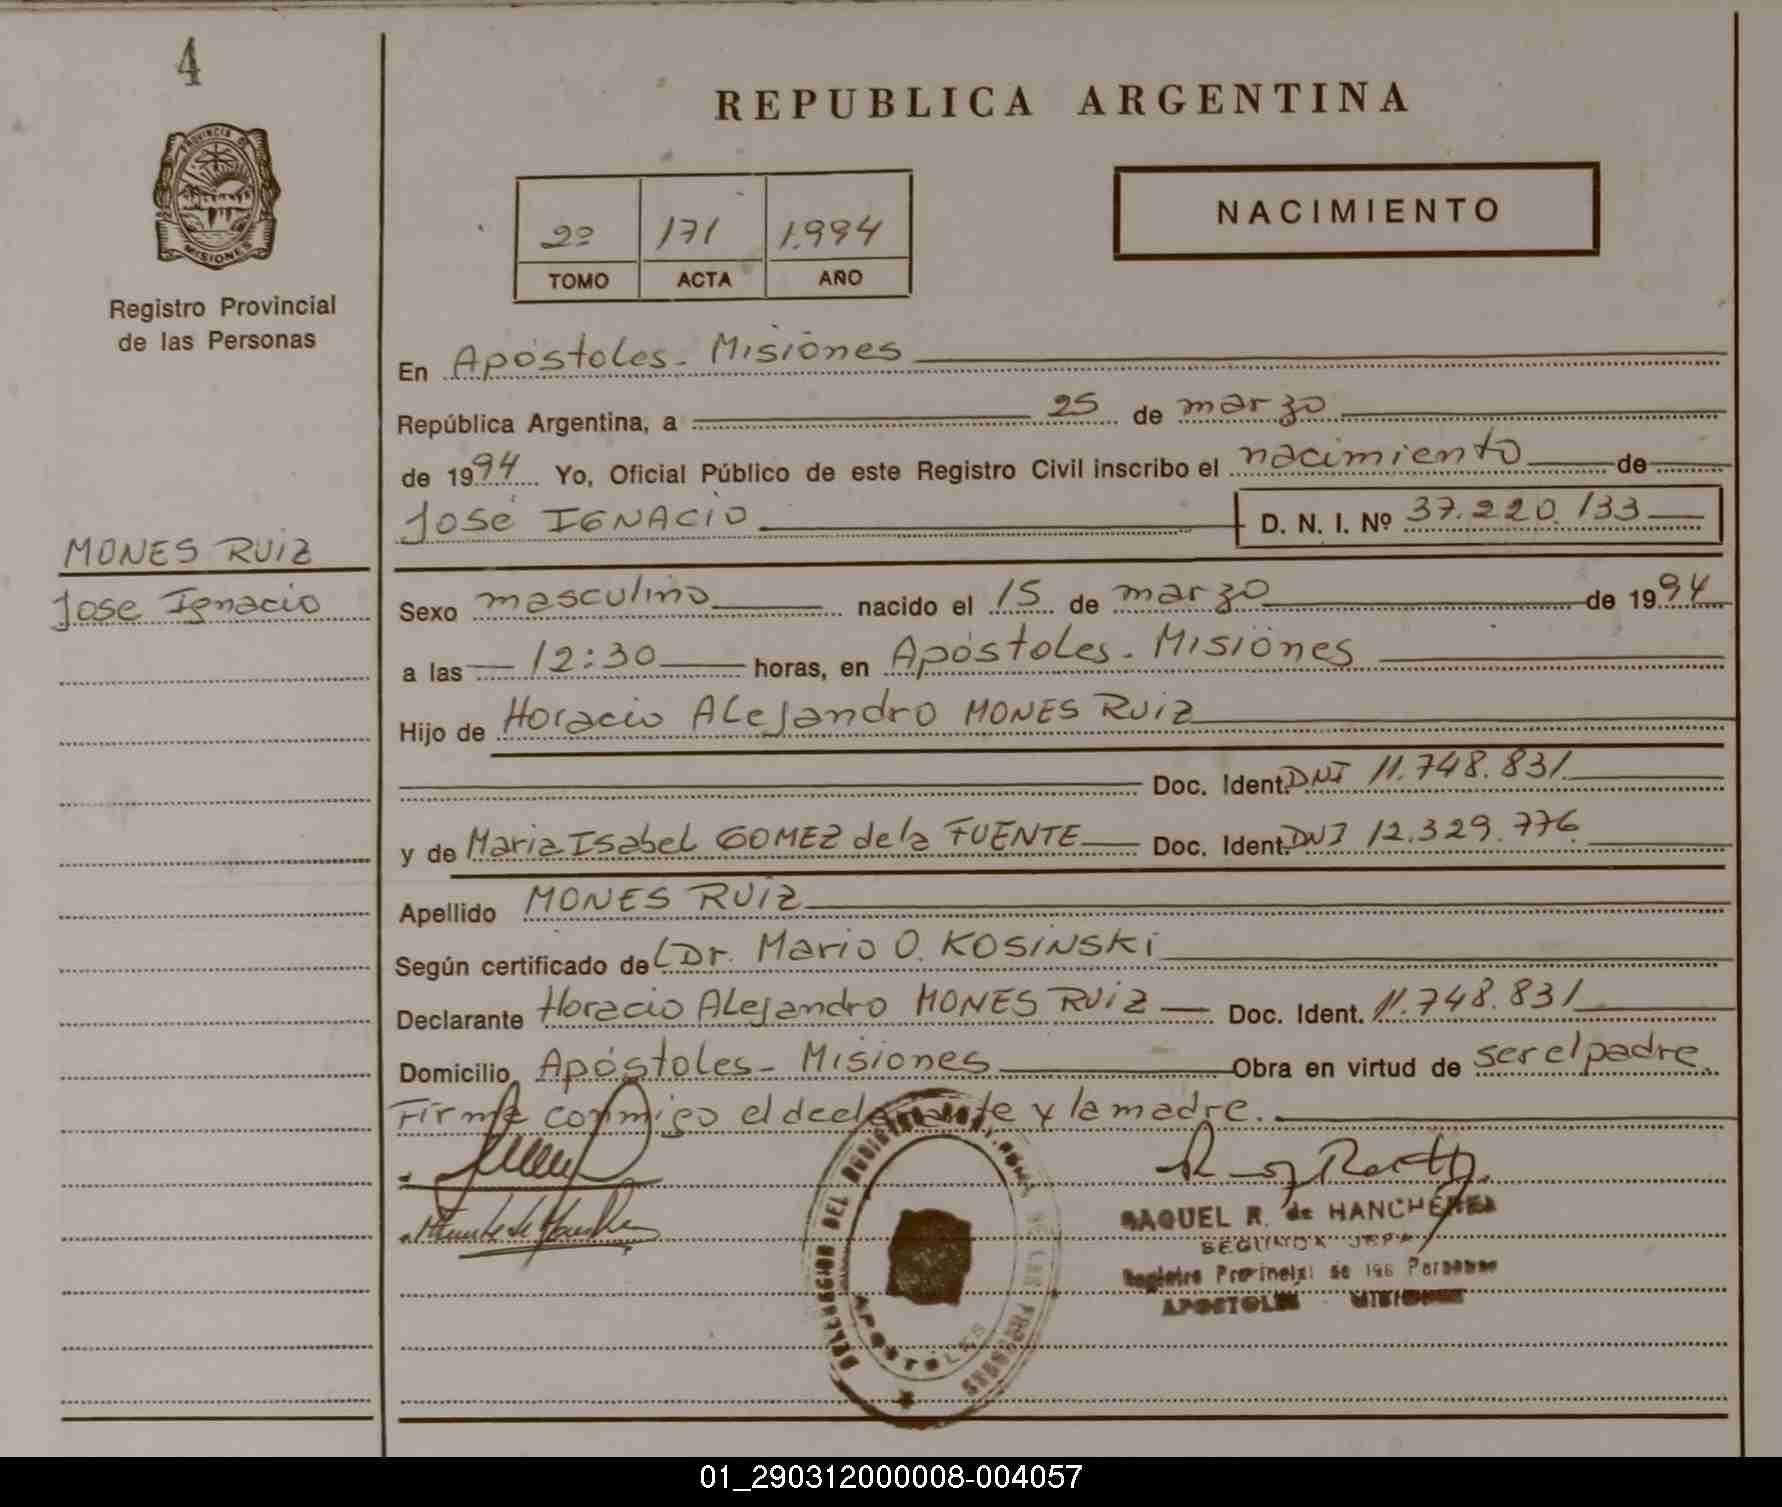 4
PROVINCIA DE
MISIONES
Registro Provincial
de las Personas
MONES RUIZ
Jose Ignacio
REPUBLICA ARGENTINA
2º 171 1.994
TOMO ACTA AÑO
NACIMIENTO
En Apóstoles - Misiones
República Argentina, a 25 de marzo
de 1994 Yo, Oficial Público de este Registro Civil inscribo el nacimiento de
José IGNACIO D. N. I. Nº 37.220.133
Sexo masculino nacido el 15 de marzo de 1994
a las 12:30 horas, en Apóstoles - Misiones
Hijo de Horacio Alejandro MONES RUIZ
Doc. Ident. DNI 11.748.831
y de Maria Isabel GOMEZ de la FUENTE Doc. Ident. DNI 12.329.776
Apellido MONES RUIZ
Según certificado del Dr. Mario O. KOSINSKI
Declarante Horacio Alejandro MONES RUIZ Doc. Ident. 11.748.831
Domicilio Apóstoles - Misiones Obra en virtud de ser el padre.
Firma conmigo el declarante y la madre.
DELEGACION DEL REGISTRO DE LAS PERSONAS
APOSTOLES
RAQUEL R. de
SEGUNDA JEFA
Registro Provincial de las Personas
APOSTOLES - MISIONES
01_290312000008-004057